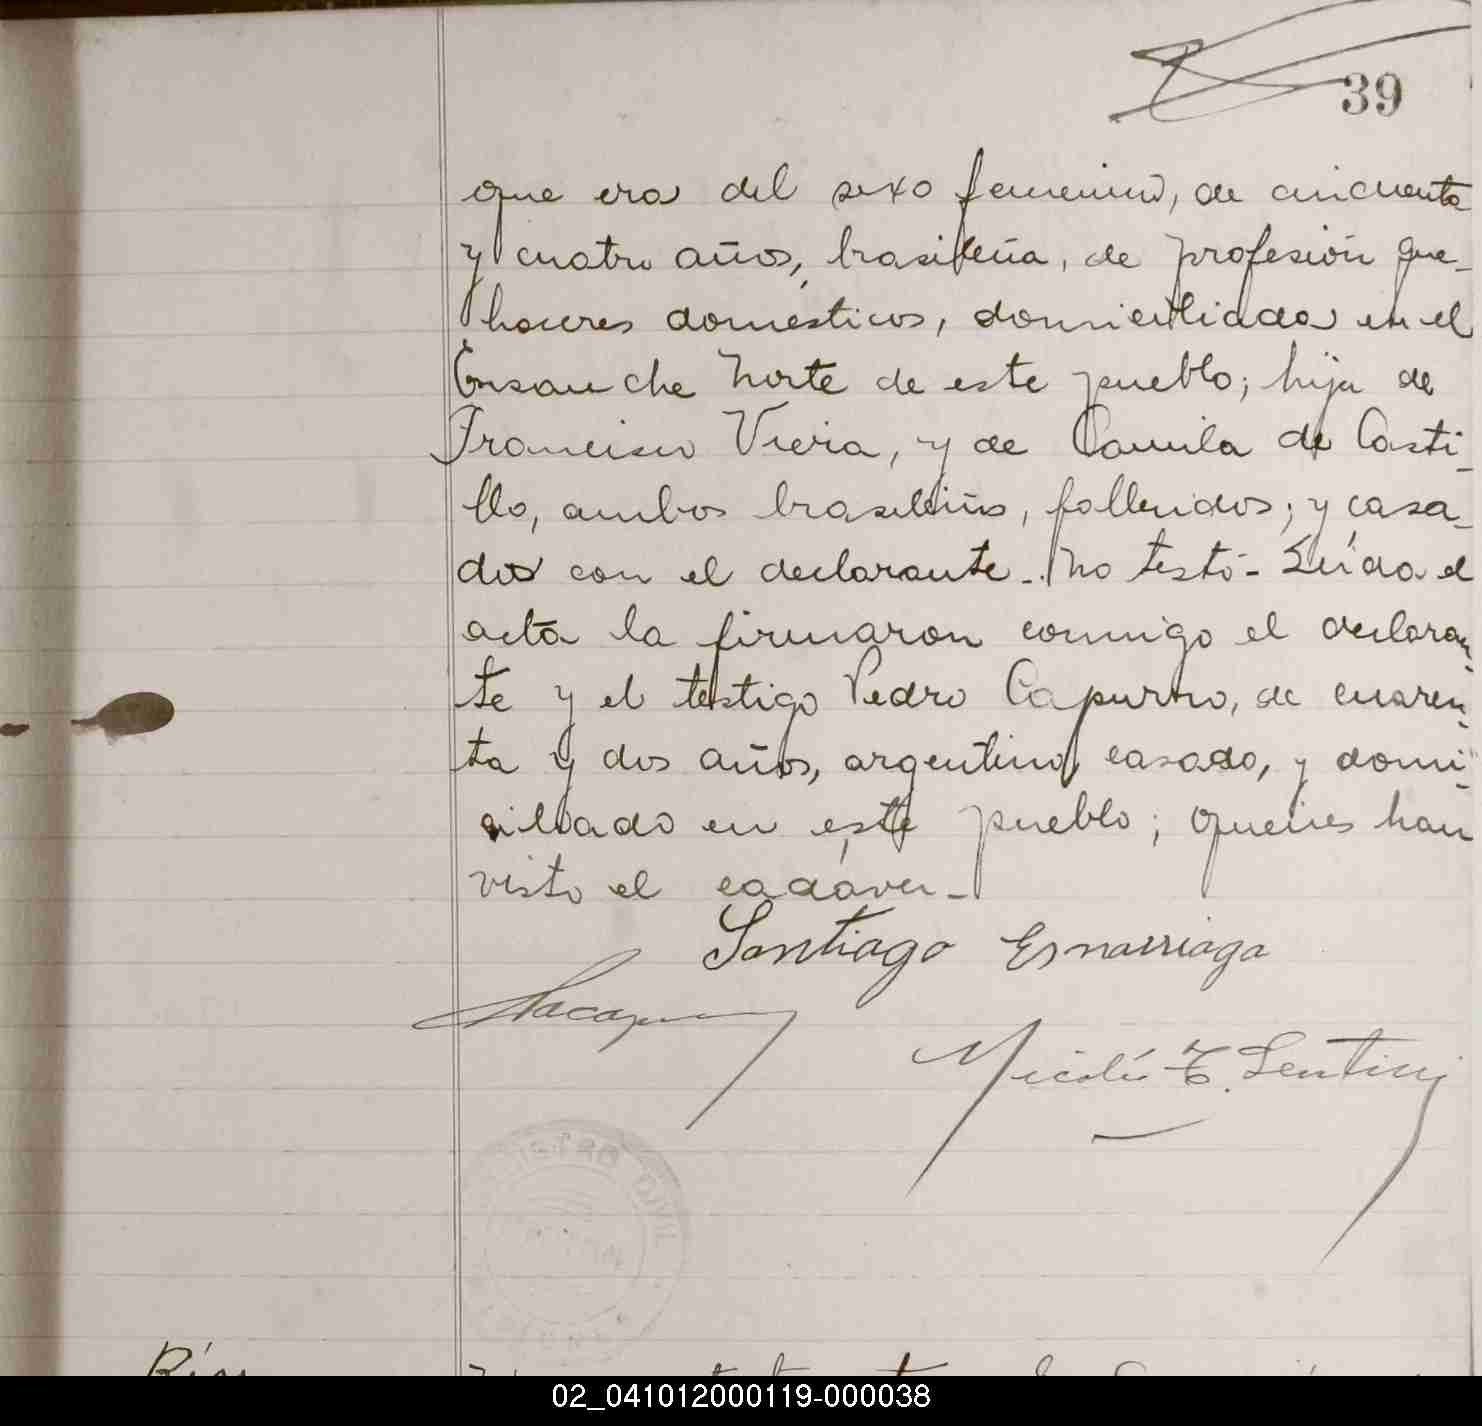 39
que era del sexo femenino, de cincuenta
y cuatro años, brasileña, de profesión que-
haceres domésticos, domiciliada en el
Ensanche Norte de este pueblo; hija de
Francisco Vieira, y de Camila de Casti-
llo, ambos brasileños, fallecidos; y casa-
dos con el declarante. No testó - Leída el
acta la firmaron conmigo el declaran-
te y el testigo Pedro Capurro, de cuaren-
ta y dos años, argentino, casado, y domi-
ciliado en este pueblo; quienes han
visto el cadáver -
Santiago Esnarriaga
REGISTRO CIVIL
02_041012000119-000038